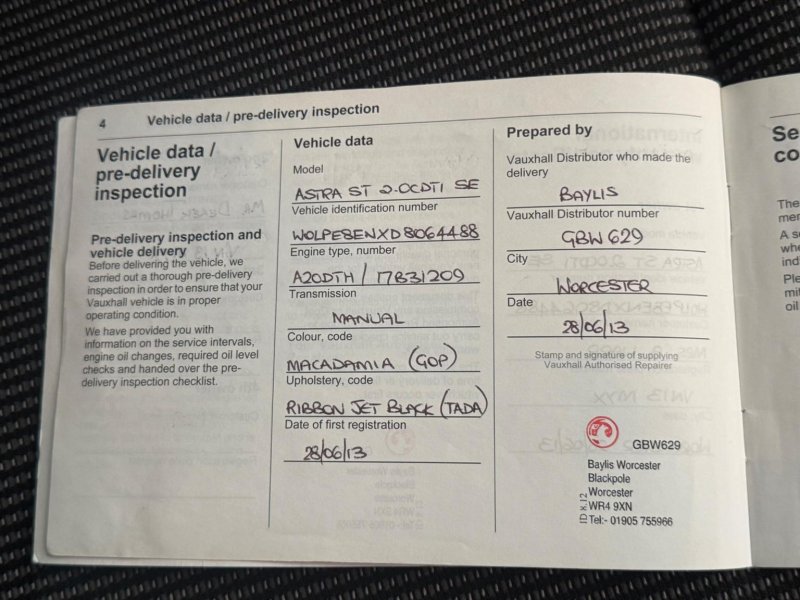 4 Vehicle data / pre-delivery inspection
Vehicle data /
pre-delivery
inspection
Pre-delivery inspection and
vehicle delivery
Before delivering the vehicle, we
carried out a thorough pre-delivery
inspection in order to ensure that your
Vauxhall vehicle is in proper
operating condition.
We have provided you with
information on the service intervals,
engine oil changes, required oil level
checks and handed over the pre-
delivery inspection checklist.
Vehicle data
Model
ASTRA ST 2.0CDTI SE
Vehicle identification number
WOLPE8ENXD8064488
Engine type, number
A20DTH / 17B31209
Transmission
MANUAL
Colour, code
MACADAMIA (GOP)
Upholstery, code
RIBBON JET BLACK (TADA)
Date of first registration
28/06/13
Prepared by
Vauxhall Distributor who made the
delivery
BAYLIS
Vauxhall Distributor number
GBW 629
City
WORCESTER
Date
28/06/13
Stamp and signature of supplying
Vauxhall Authorised Repairer
GBW629
Baylis Worcester
Blackpole
Worcester
WR4 9XN
Tel:- 01905 755966
ID K.12
Se
co
The
A s
whe
ind
Ple
mil
oil